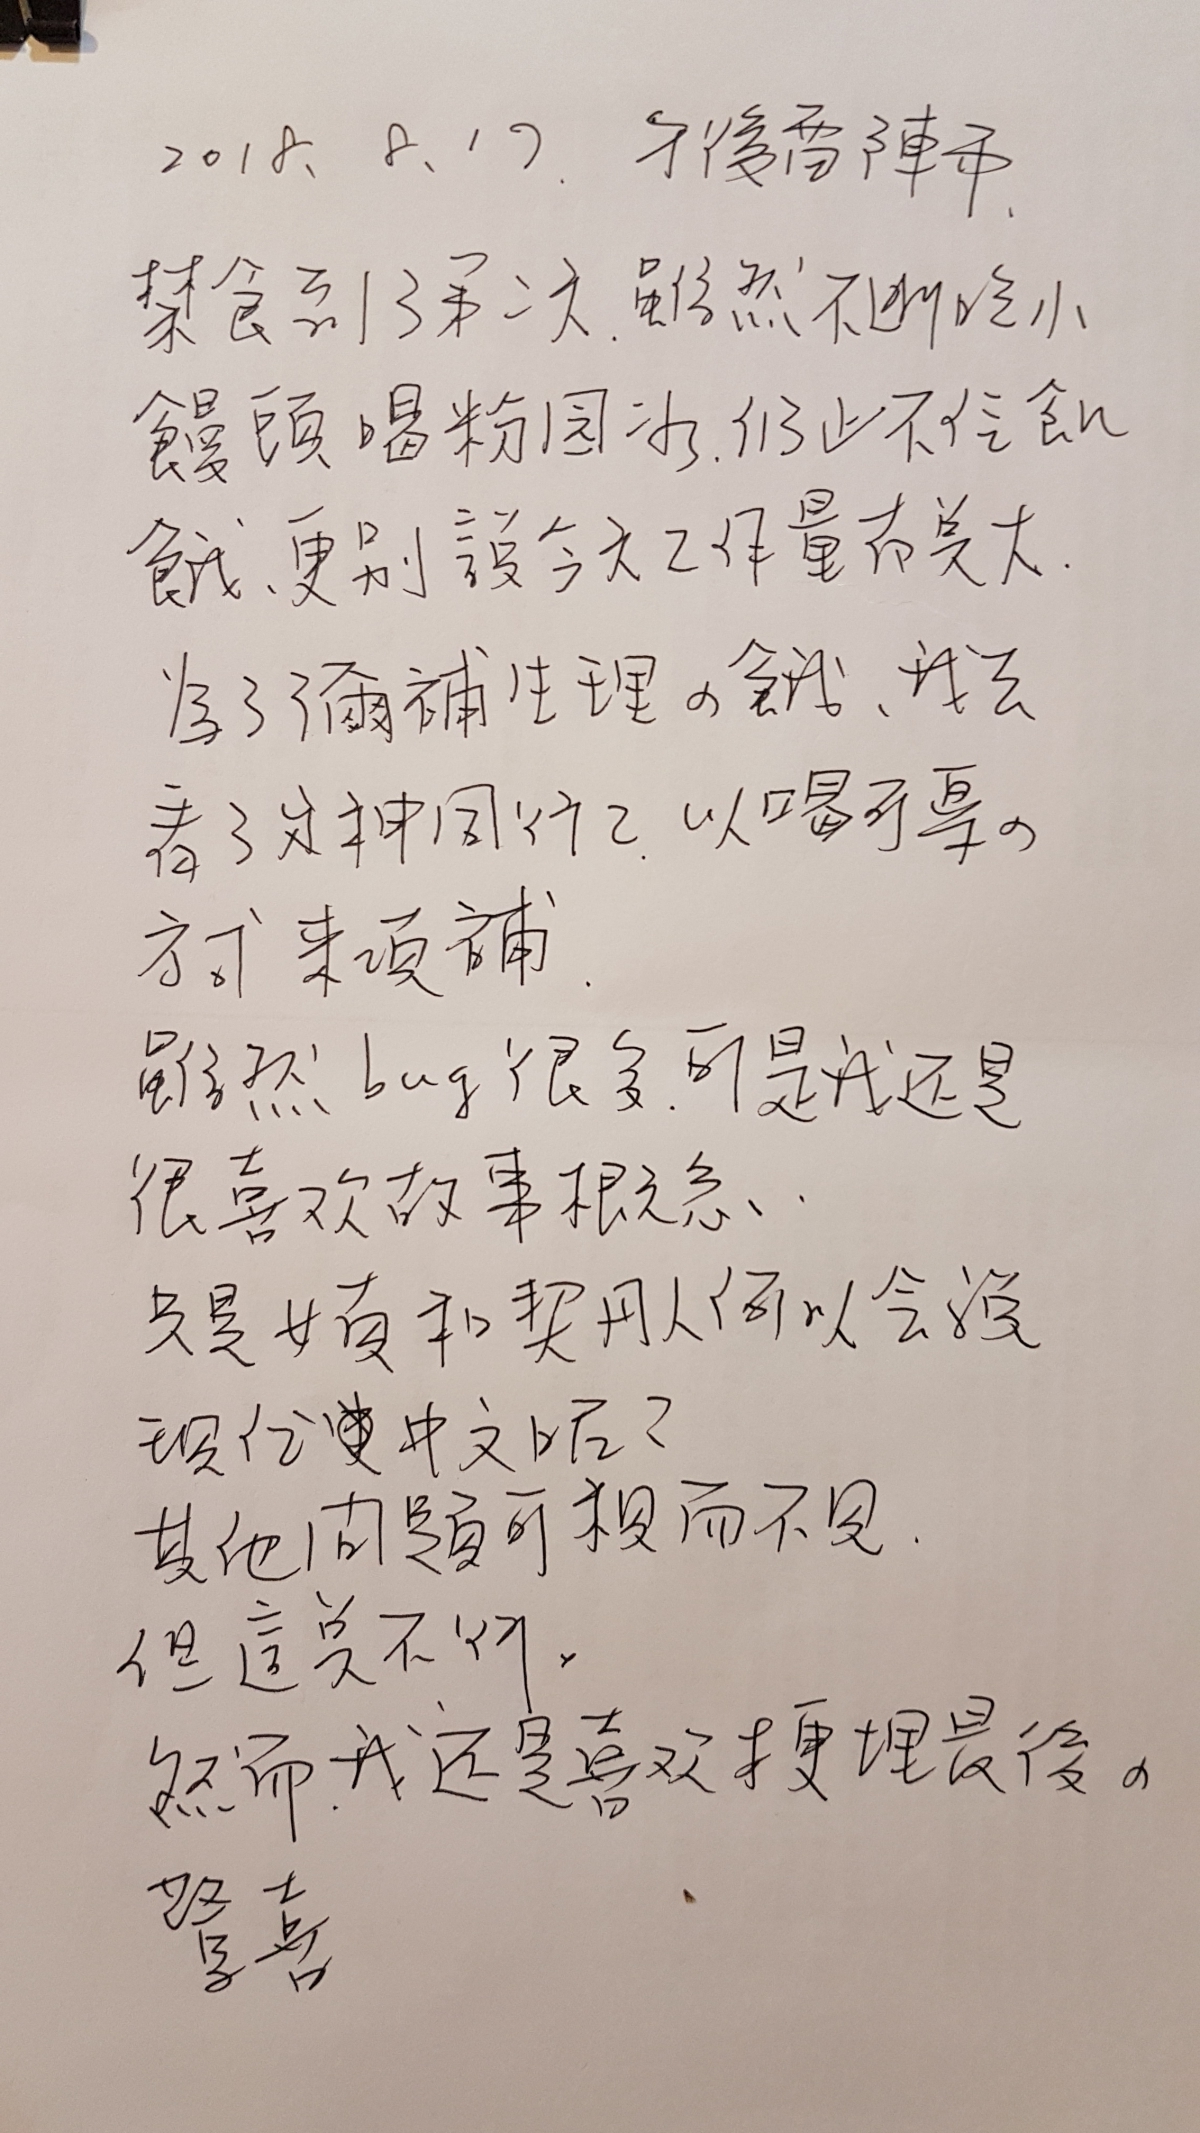 2018. 8. 17. 午後雷陣雨.
禁食到了第二次.雖然不断吃小
饅頭喝粉圆冰.仍止不住飢
餓、更别說今天工作量有夠大.
為了彌補生理の餓、我去
看了与神同行2.以喝可樂の
方式来填補.
雖然bug很多.可是我还是
很喜欢故事概念、.
只是女真和契丹人何以会說
現代中文呢?
其他問題可視而不見.
但這点不行.
然而.我还是喜欢梗埋最後の
驚喜